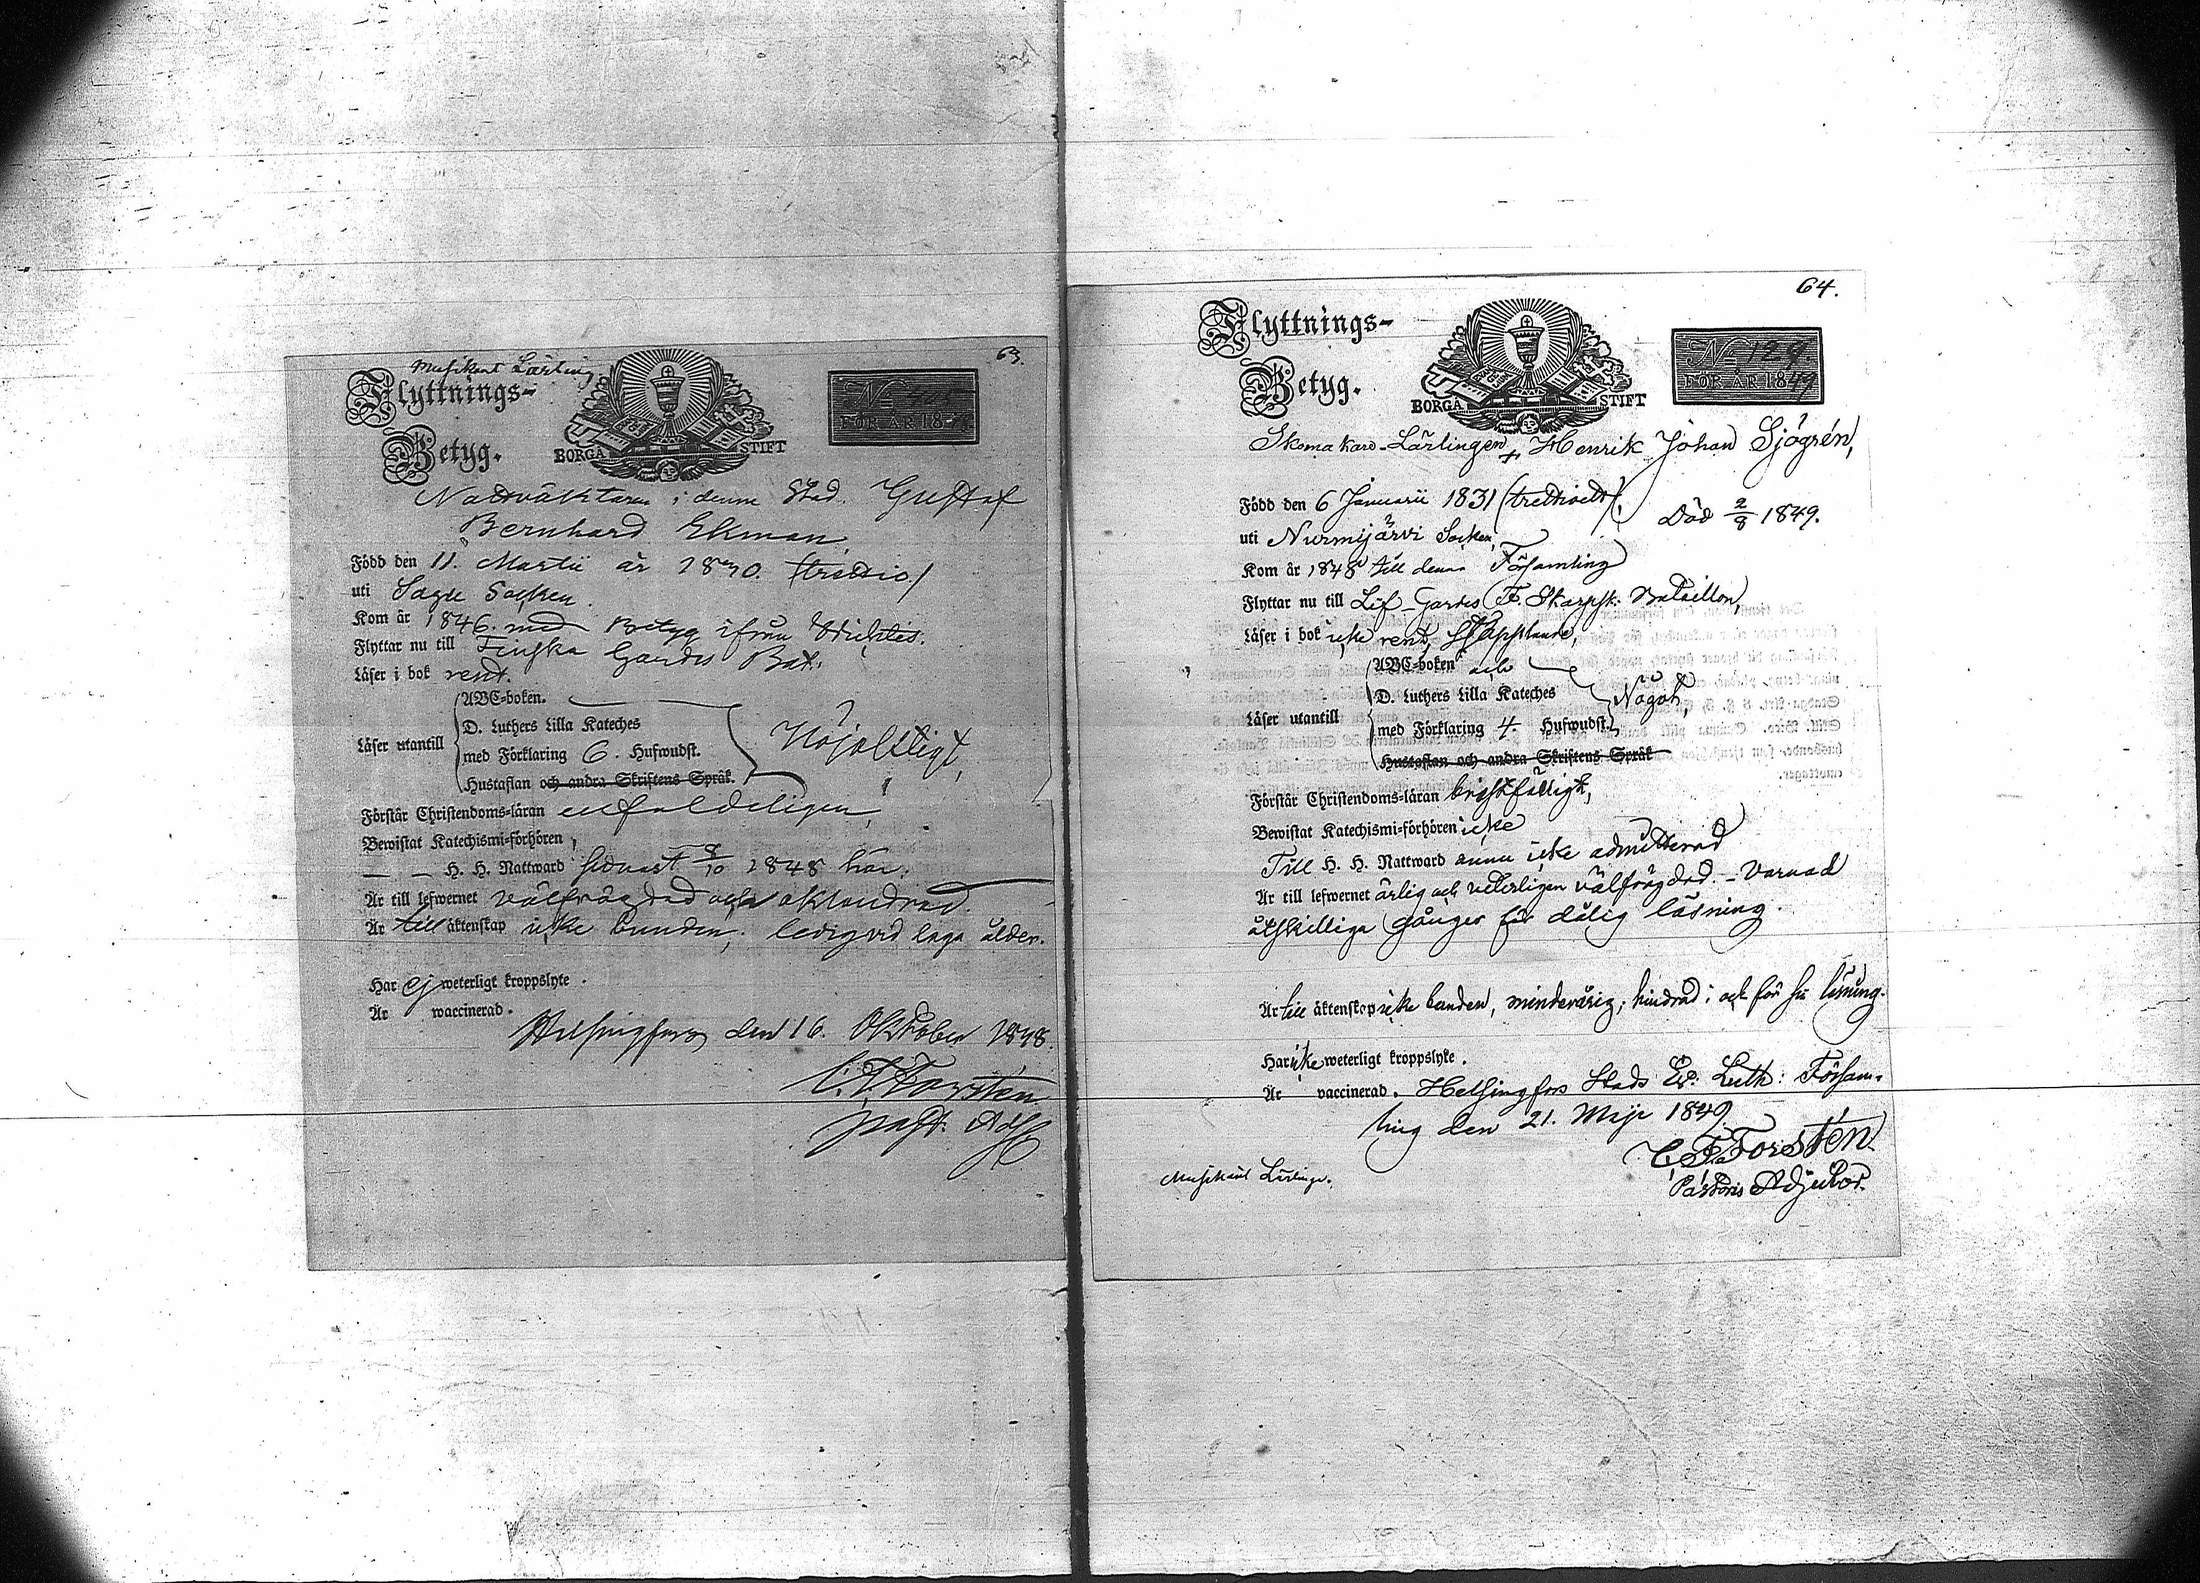 63.
Musikant Lärling
Flyttnings-
Betyg.
BORGÅ STIFT
No
FÖR ÅR 18
Nattväktaren i denna Stad Gustaf
Bernhard Ekman,
Född den 11. Martii år 1830. (trettio)
uti Sagu Socken.
Kom år 1846. med Betyg ifrån Wichtis.
Flyttar nu till Finska Gardes Bat.
Läser i bok rent.
Läser utantill
ABC-boken.
D. Luthers Lilla Kateches
med Förklaring 6. Hufwudst.
Hustaflan och andra Skriftens Språk.
Nöjaktligt,
Förstår Christendoms-läran enfaldeligen,
Bewistat Katechismi-förhören,
— — H. H. Nattward sednast 8/10 1848 här.
Är till lefwernet välfrägdad och oklandrad.
Är till äktenskap icke bunden; ledig vid laga ålder.
Har ej weterligt kroppslyte.
Är waccinerad.
Helsingfors den 16. Oktober 1848.
C. F. Forstén
past. Adj.
64.
Flyttnings-
Betyg.
BORGÅ STIFT
No 129.
FÖR ÅR 1849
Skomakare-Lärlingen + Henrik Johan Sjögrén,
Född den 6 Januarii 1831 (trettioett),
Död 2/8 1849.
uti Nurmijärvi Socken,
Kom år 1848 till denna Församling
Flyttar nu till Lif-Gardes F. Skarpsk: Bataillon,
Läser i bok icke rent,
Läser utantill
ABC-boken och
D. Luthers Lilla Kateches
med Förklaring 4. Hufwudst.
Hustaflan och andra Skriftens Språk
Något,
Förstår Christendoms-läran bristfälligt,
Bewistat Katechismi-förhören icke
Till H. H. Nattward ännu icke admitterad
Är till lefwernet ärlig och veterligen välfrägdad. - Varnad
åtskilliga gånger för dålig läsning.
Är till äktenskap icke bunden, minderårig; hindrad i och för sin läsning.
Har icke weterligt kroppslyte.
Är vaccinerad. Helsingfors Stads Ev. Luth: Försam-
ling den 21. Maji 1849
C. F. Forstén
Pastoris Adjutor.
Musikant Lärlinge.